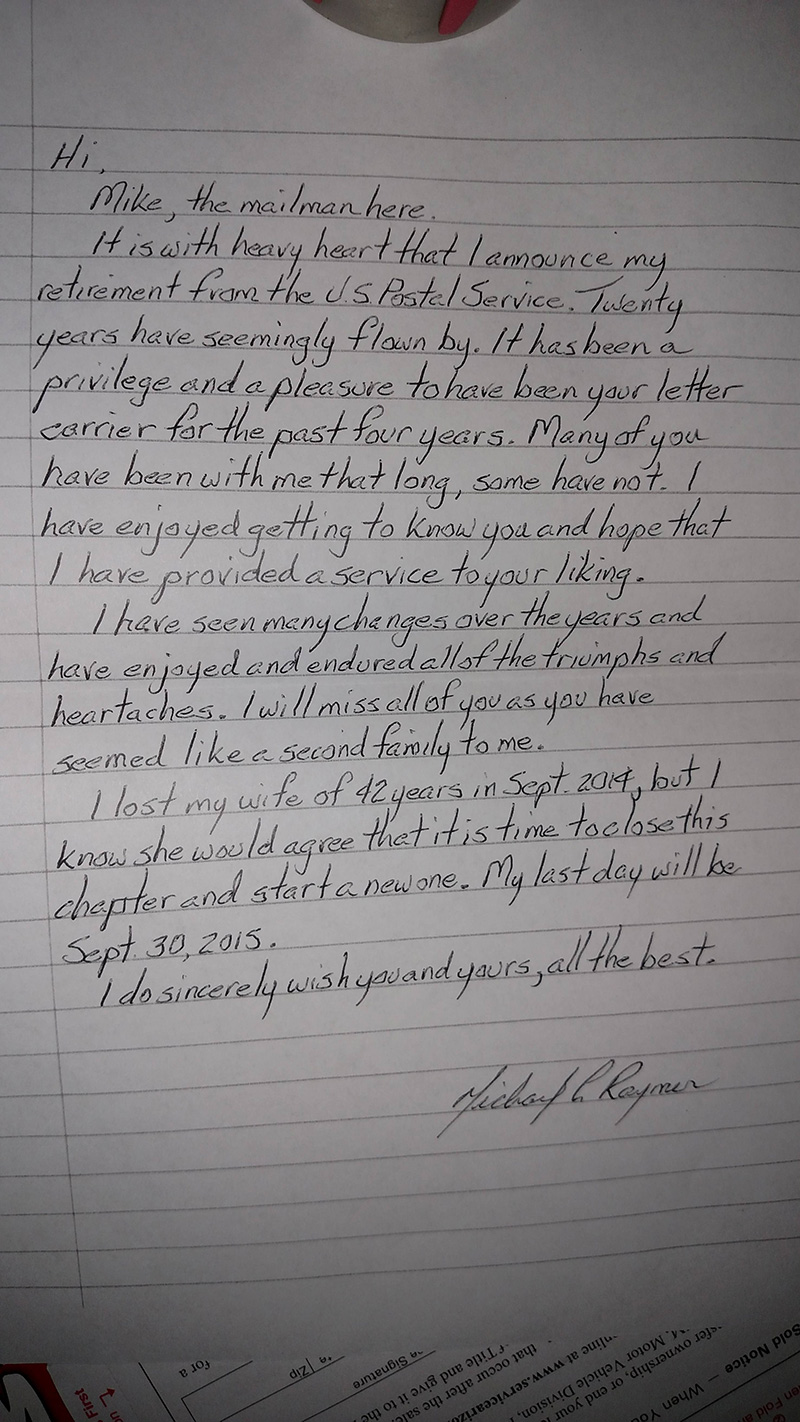 Hi,
Mike, the mailman here.
It is with heavy heart that I announce my
retirement from the U.S. Postal Service. Twenty
years have seemingly flown by. It has been a
privilege and a pleasure to have been your letter
carrier for the past four years. Many of you
have been with me that long, some have not. I
have enjoyed getting to know you and hope that
I have provided a service to your liking.
I have seen many changes over the years and
have enjoyed and endured all of the triumphs and
heartaches. I will miss all of you as you have
seemed like a second family to me.
I lost my wife of 42 years in Sept. 2014, but I
know she would agree that it is time to close this
chapter and start a new one. My last day will be
Sept. 30, 2015.
I do sincerely wish you and yours, all the best.
Michael Raymer
for a
Zip
Signature
Title and give it to the
that occur after the sale
online at www.servicearizo
Motor Vehicle Division,
ownership, or end your
Sold Notice — When Yo
First